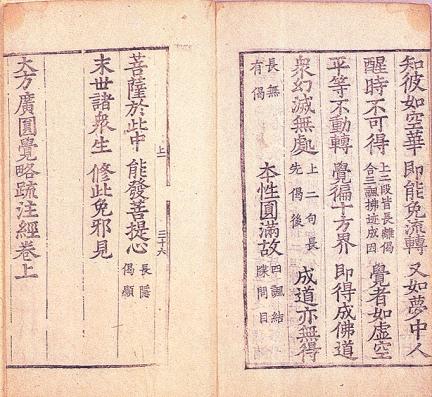 知彼如空華 即能免流轉 又如夢中人
醒時不可得 上三段皆長離偈
合三諷拂迹成因 覺者如虛空
平等不動轉 覺徧十方界 即得成佛道
衆幻滅無處 上二句長
先偈後 成道亦無得
無偈
長有 本性圓滿故 四諷結
牒問目
上一
三十六
菩薩於此中 能發菩提心 長隱
偈顯
末世諸衆生 修此免邪見
大方廣圓覺略疏注經卷上